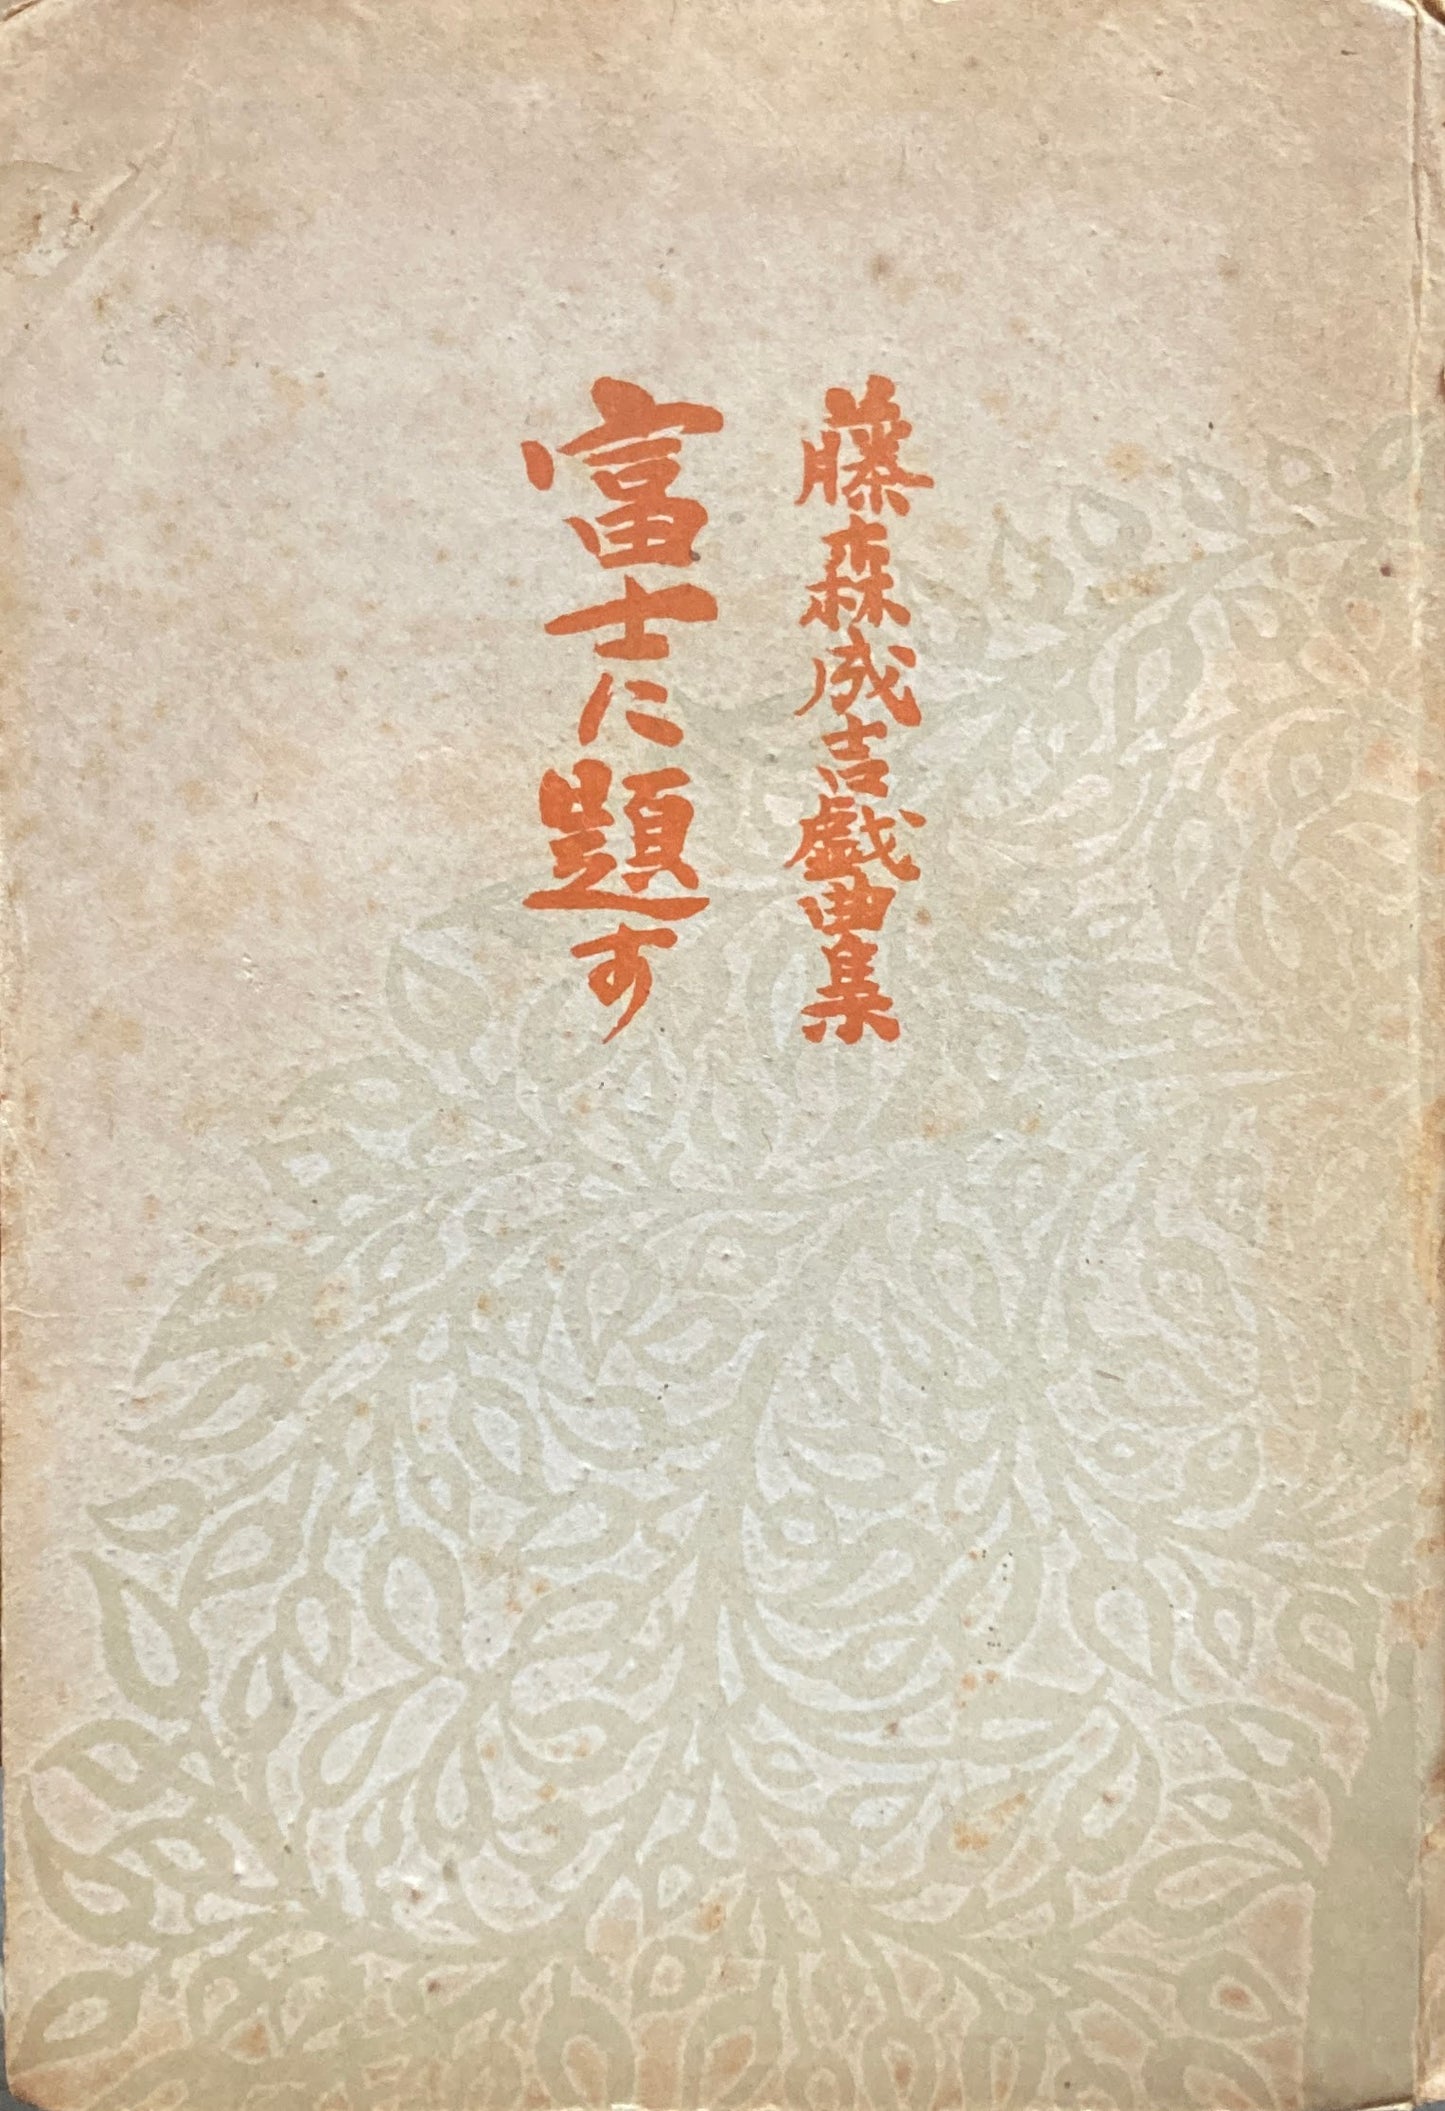 藤森成吉戯曲集
富士に題す